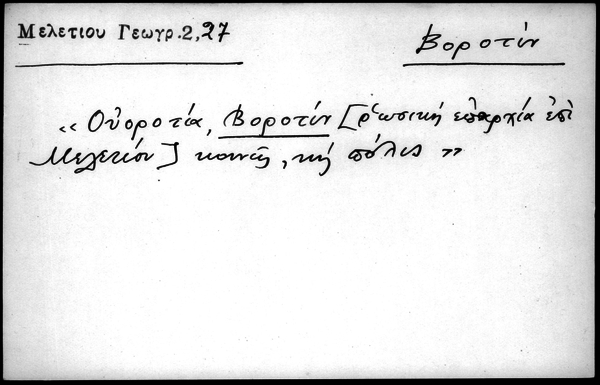 Μελετίου Γεωγρ. 2, 27
Βοροτίν
« Οὐοροτία, Βοροτίν [ρωσική ἐπαρχία ἐπὶ
Μελετίου] κοινῶς, κὴ πόλις »